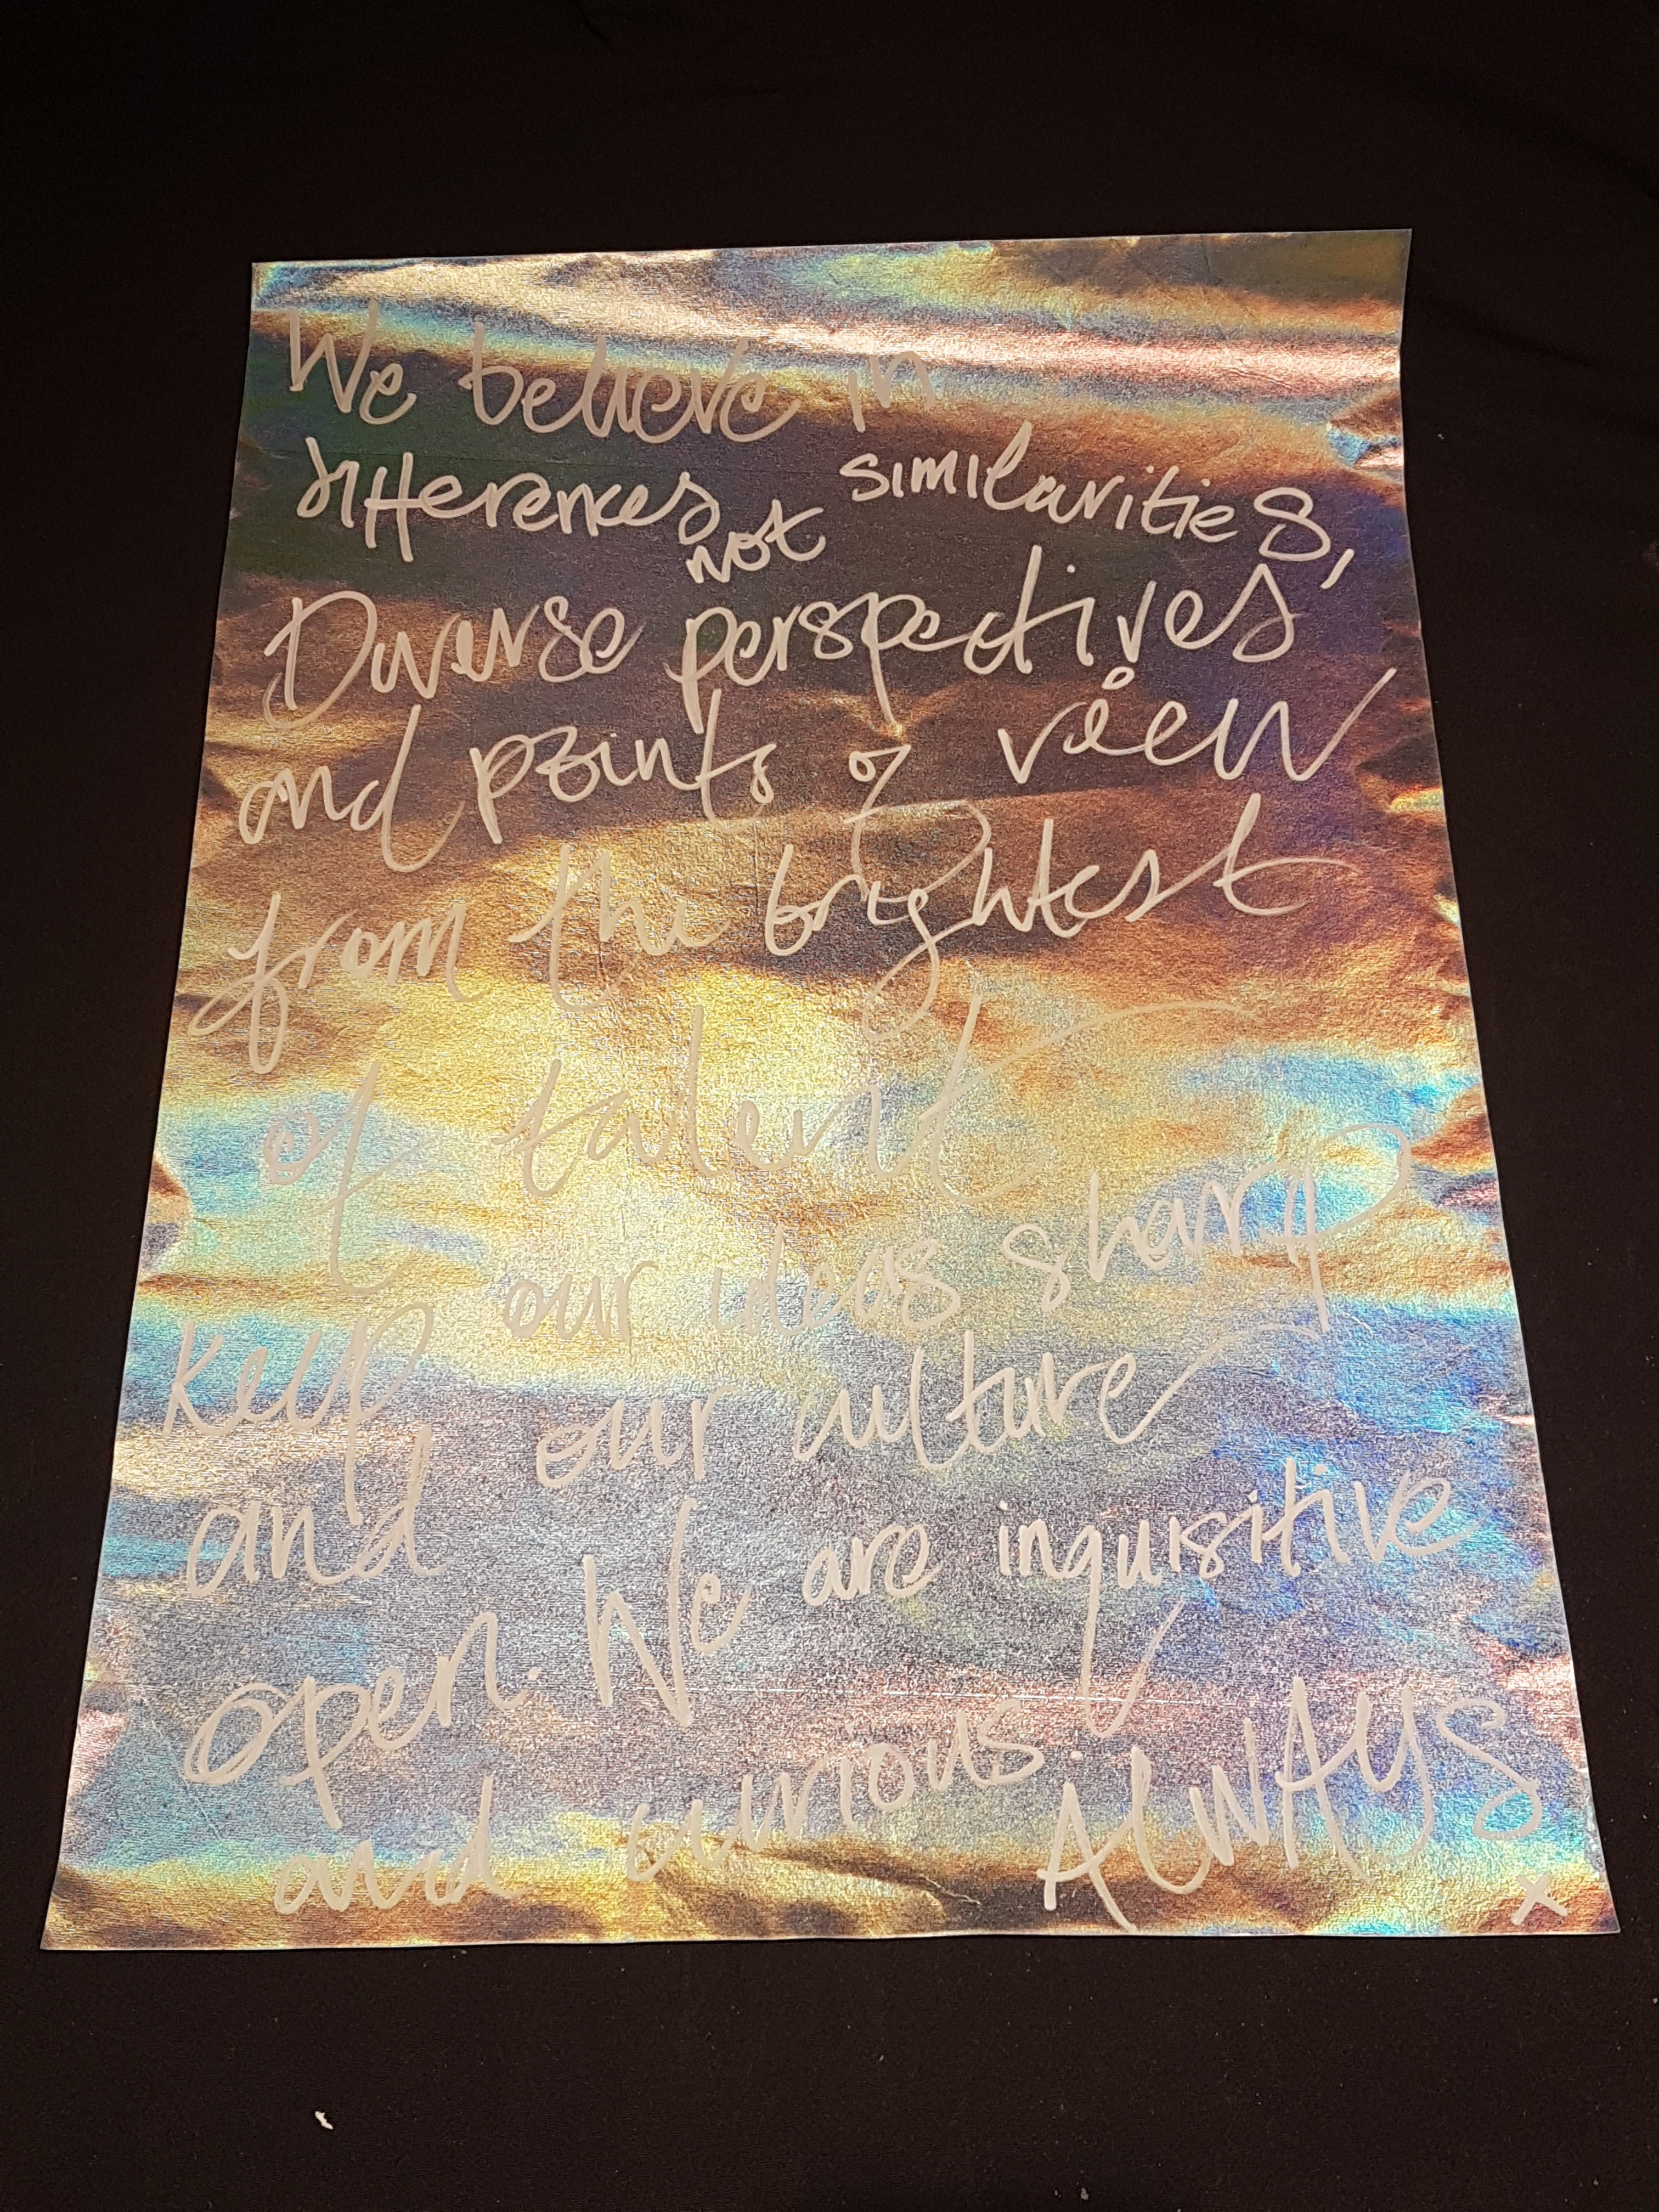 We believe in
differences not similarities,
Diverse perspectives
and points of view
from the brightest
of talent
keep our ideas sharp
and our culture
open. We are inquisitive
and curious. ALWAYS
x